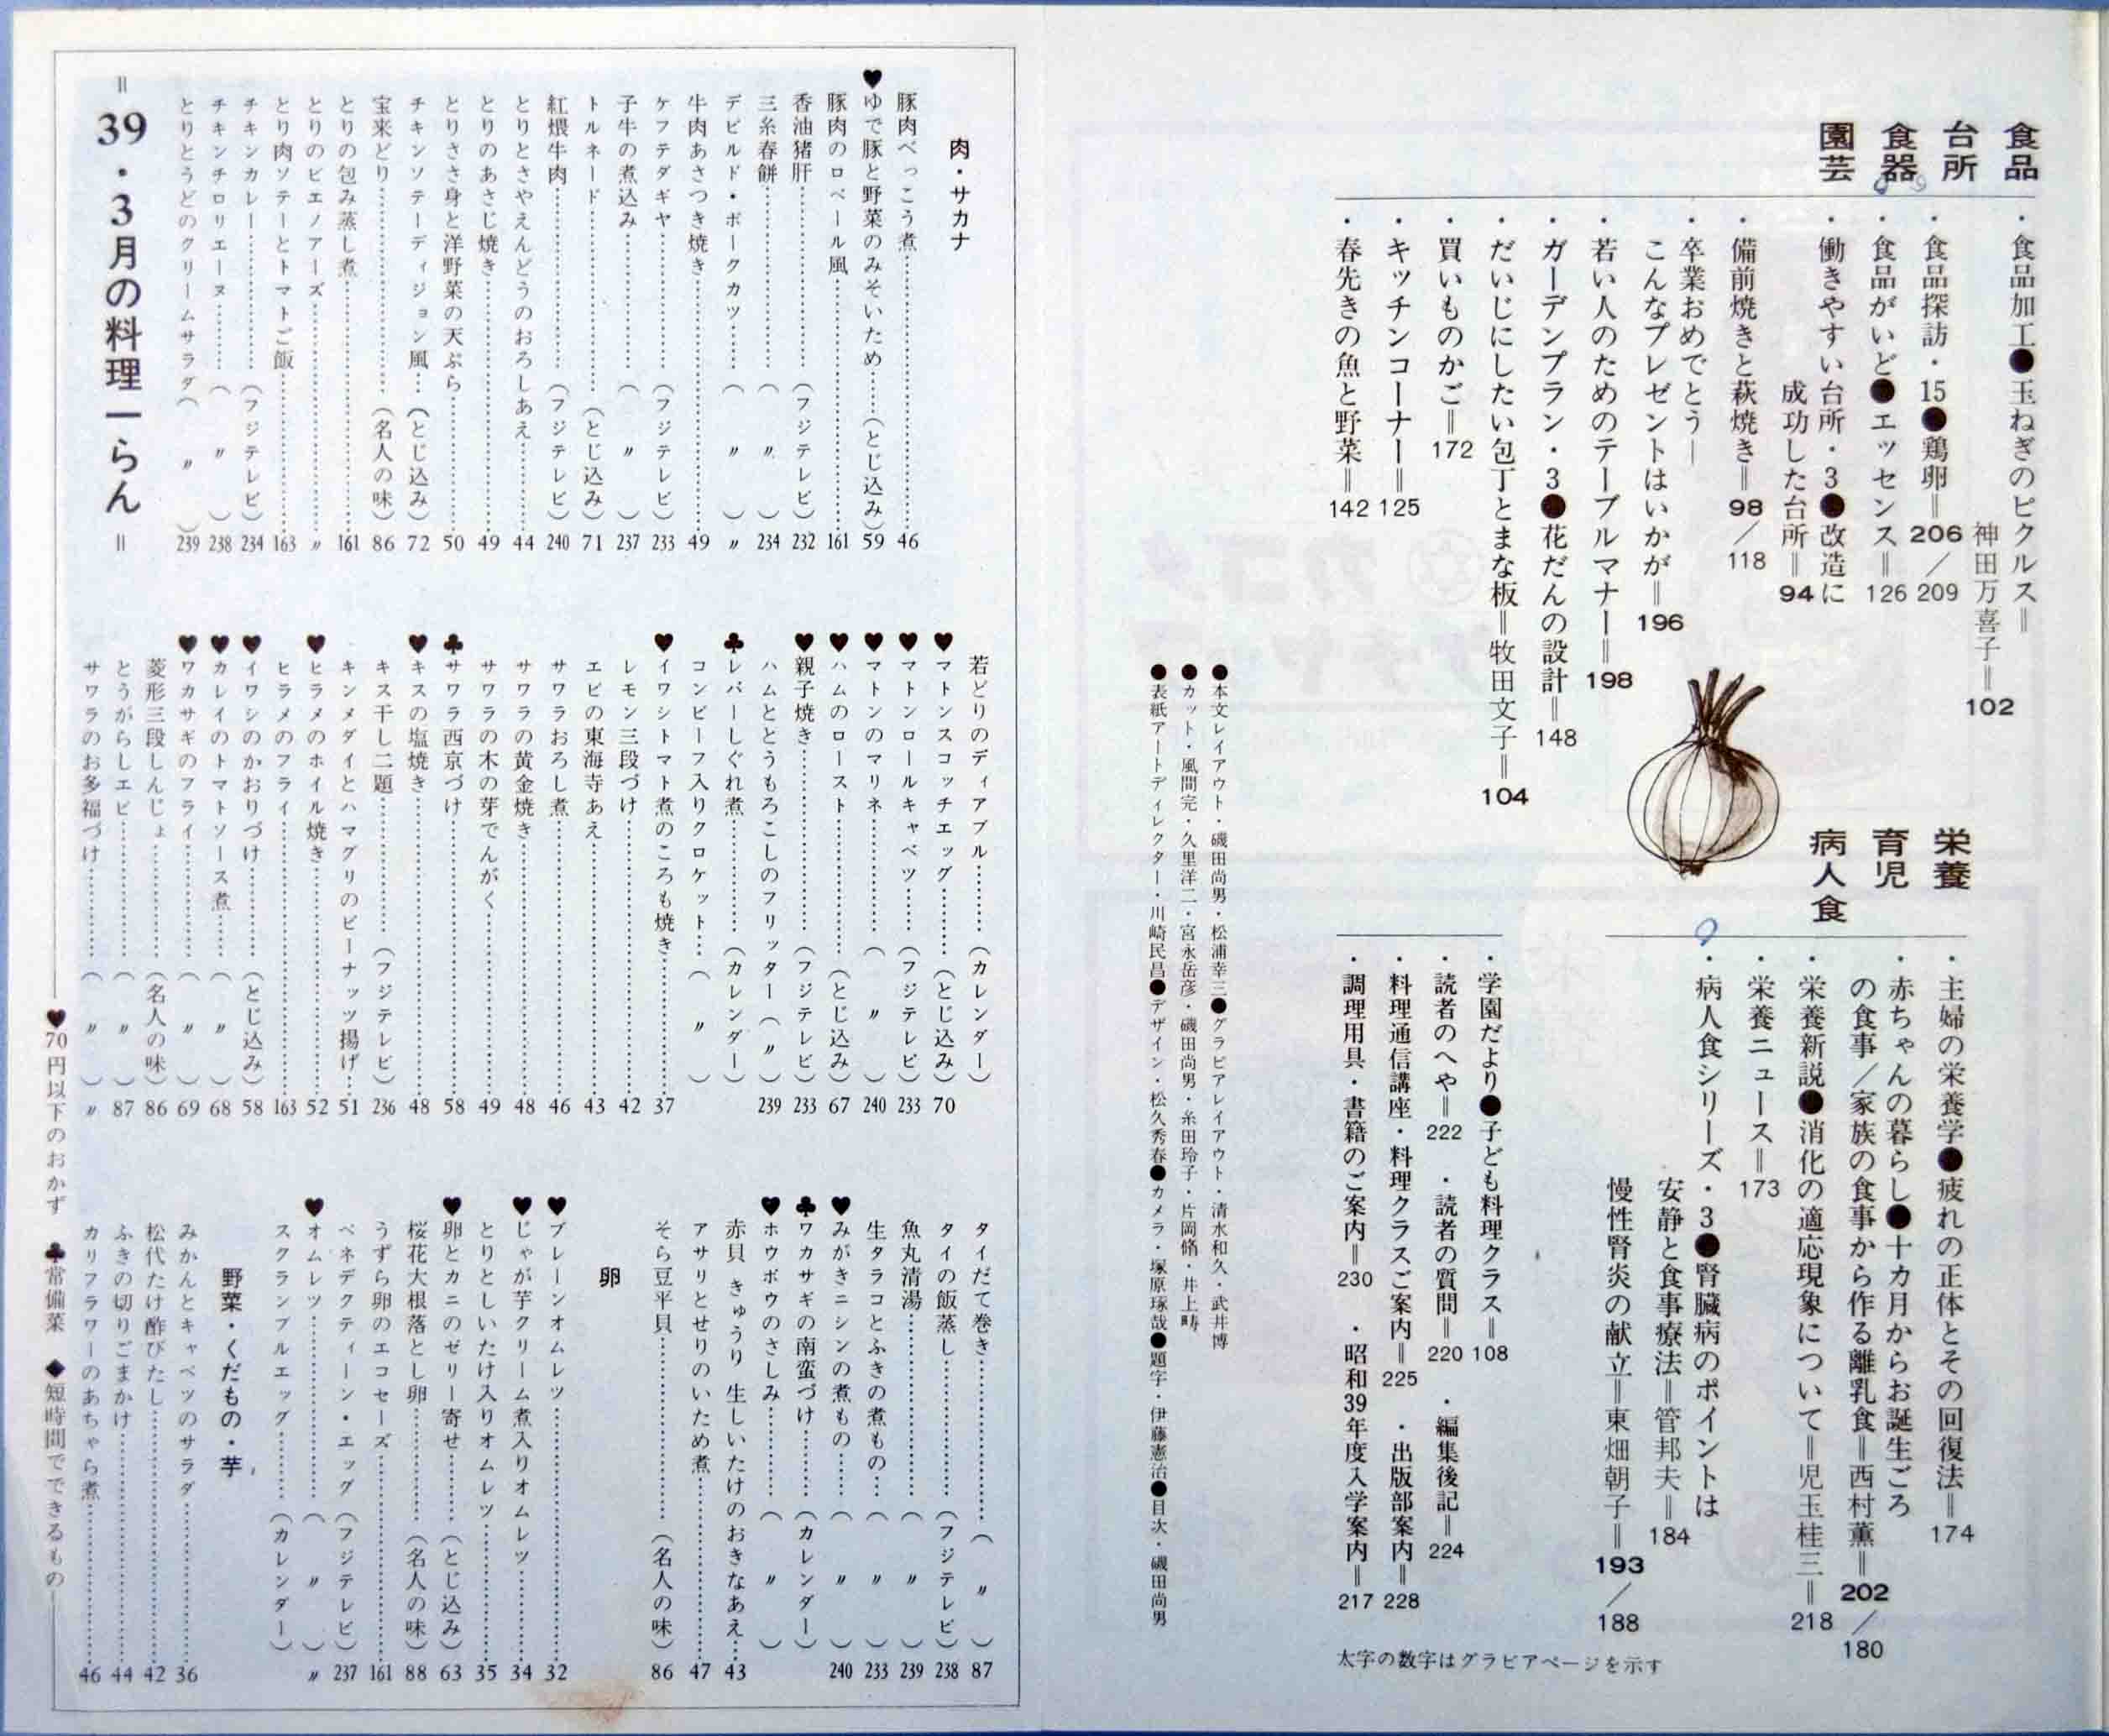 食品
台所
食器
園芸
・食品加工●玉ねぎのピクルス＝
神田万喜子＝102
・食品探訪・15●鶏卵＝206／209
・食品がいど●エッセンス＝126
・働きやすい台所・3●改造に
成功した台所＝94
・備前焼きと萩焼き＝98／118
・卒業おめでとう―
こんなプレゼントはいかが＝196
・若い人のためのテーブルマナー＝198
・ガーデンプラン・3●花だんの設計＝148
・だいじにしたい包丁とまな板＝牧田文子＝104
・買いものかご＝172
・キッチンコーナー＝125
・春先きの魚と野菜＝142
栄養
育児
病人食
・主婦の栄養学●疲れの正体とその回復法＝174
・赤ちゃんの暮らし●十カ月からお誕生ごろ
の食事／家族の食事から作る離乳食＝西村薫＝202／180
・栄養新説●消化の適応現象について＝児玉桂三＝218
・栄養ニュース＝173
・病人食シリーズ・3●腎臓病のポイントは
安静と食事療法＝管邦夫＝184
慢性腎炎の献立＝東畑朝子＝193／188
・学園だより●子ども料理クラス＝108
・読者のへや＝222　・読者の質問＝220　・編集後記＝224
・料理通信講座・料理クラスご案内＝225　・出版部案内＝228
・調理用具・書籍のご案内＝230　・昭和39年度入学案内＝217
太字の数字はグラビアページを示す
●本文レイアウト・磯田尚男・松浦幸三●グラビアレイアウト・清水和久・武井博
●カット・風間完・久里洋二・宮永岳彦・磯田尚男・糸田玲子・片岡脩・井上疇
●表紙アートディレクター・川崎民昌●デザイン・松久秀春●カメラ・塚原琢哉●題字・伊藤憲治●目次・磯田尚男
肉・サカナ
豚肉べっこう煮……46
♥ゆで豚と野菜のみそいため……（とじ込み）59
豚肉のロベール風……161
香油猪肝……（フジテレビ）232
三糸春餅……（〃）234
デビルド・ポークカツ……（〃）〃
牛肉あさつき焼き……49
ケフテダギヤ……（フジテレビ）233
子牛の煮込み……（〃）237
トルネード……（とじ込み）71
紅煨牛肉……（フジテレビ）240
とりとさやえんどうのおろしあえ……44
とりのあさじ焼き……49
とりささ身と洋野菜の天ぷら……50
チキンソテーディジョン風…（とじ込み）72
宝来どり……（名人の味）86
とりの包み蒸し煮……161
とりのビエノアーズ……〃
とり肉ソテーとトマトご飯……163
チキンカレー……（フジテレビ）234
チキンチロリエーヌ……（〃）238
とりとうどのクリームサラダ（〃）239
＝39・3月の料理一らん＝
若どりのディアブル……（カレンダー）
♥マトンスコッチエッグ……（とじ込み）70
♥マトンロールキャベツ……（フジテレビ）233
♥マトンのマリネ……（〃）240
♥ハムのロースト……（とじ込み）67
♥親子焼き……（フジテレビ）233
ハムととうもろこしのフリッター（〃）239
♣レバーしぐれ煮……（カレンダー）
コンビーフ入りクロケット…（〃）
♥イワシトマト煮のころも焼き……37
レモン三段づけ……42
エビの東海寺あえ……43
サワラおろし煮……46
サワラの黄金焼き……48
サワラの木の芽でんがく……49
♣サワラ西京づけ……58
♥キスの塩焼き……48
キス干し二題……（フジテレビ）236
キンメダイとハマグリのピーナッツ揚げ…51
♥ヒラメのホイル焼き……52
ヒラメのフライ……163
♥イワシのかおりづけ……（とじ込み）58
♥カレイのトマトソース煮……（〃）68
♥ワカサギのフライ……（〃）69
菱形三段しんじょ……（名人の味）86
とうがらしエビ……（〃）87
サワラのお多福づけ……（〃）〃
タイだて巻き……（〃）87
タイの飯蒸し……（フジテレビ）238
魚丸清湯……（〃）239
生タラコとふきの煮もの……（〃）233
♥みがきニシンの煮もの……（〃）240
♣ワカサギの南蛮づけ……（カレンダー）
♥ホウボウのさしみ……（〃）
赤貝　きゅうり　生しいたけのおきなあえ…43
アサリとせりのいため煮……47
そら豆平貝……（名人の味）86
卵
♥プレーンオムレツ……32
♥じゃが芋クリーム煮入りオムレツ……34
とりとしいたけ入りオムレツ……35
♥卵とカニのゼリー寄せ……（とじ込み）63
桜花大根落とし卵……（名人の味）88
うずら卵のエコセーズ……161
ベネデクティーン・エッグ（フジテレビ）237
♥オムレツ……（〃）〃
スクランブルエッグ……（カレンダー）
野菜・くだもの・芋
みかんとキャベツのサラダ……36
松代たけ酢びたし……42
ふきの切りごまかけ……44
カリフラワーのあちゃら煮……46
♥70円以下のおかず　♣常備菜　◆短時間でできるもの